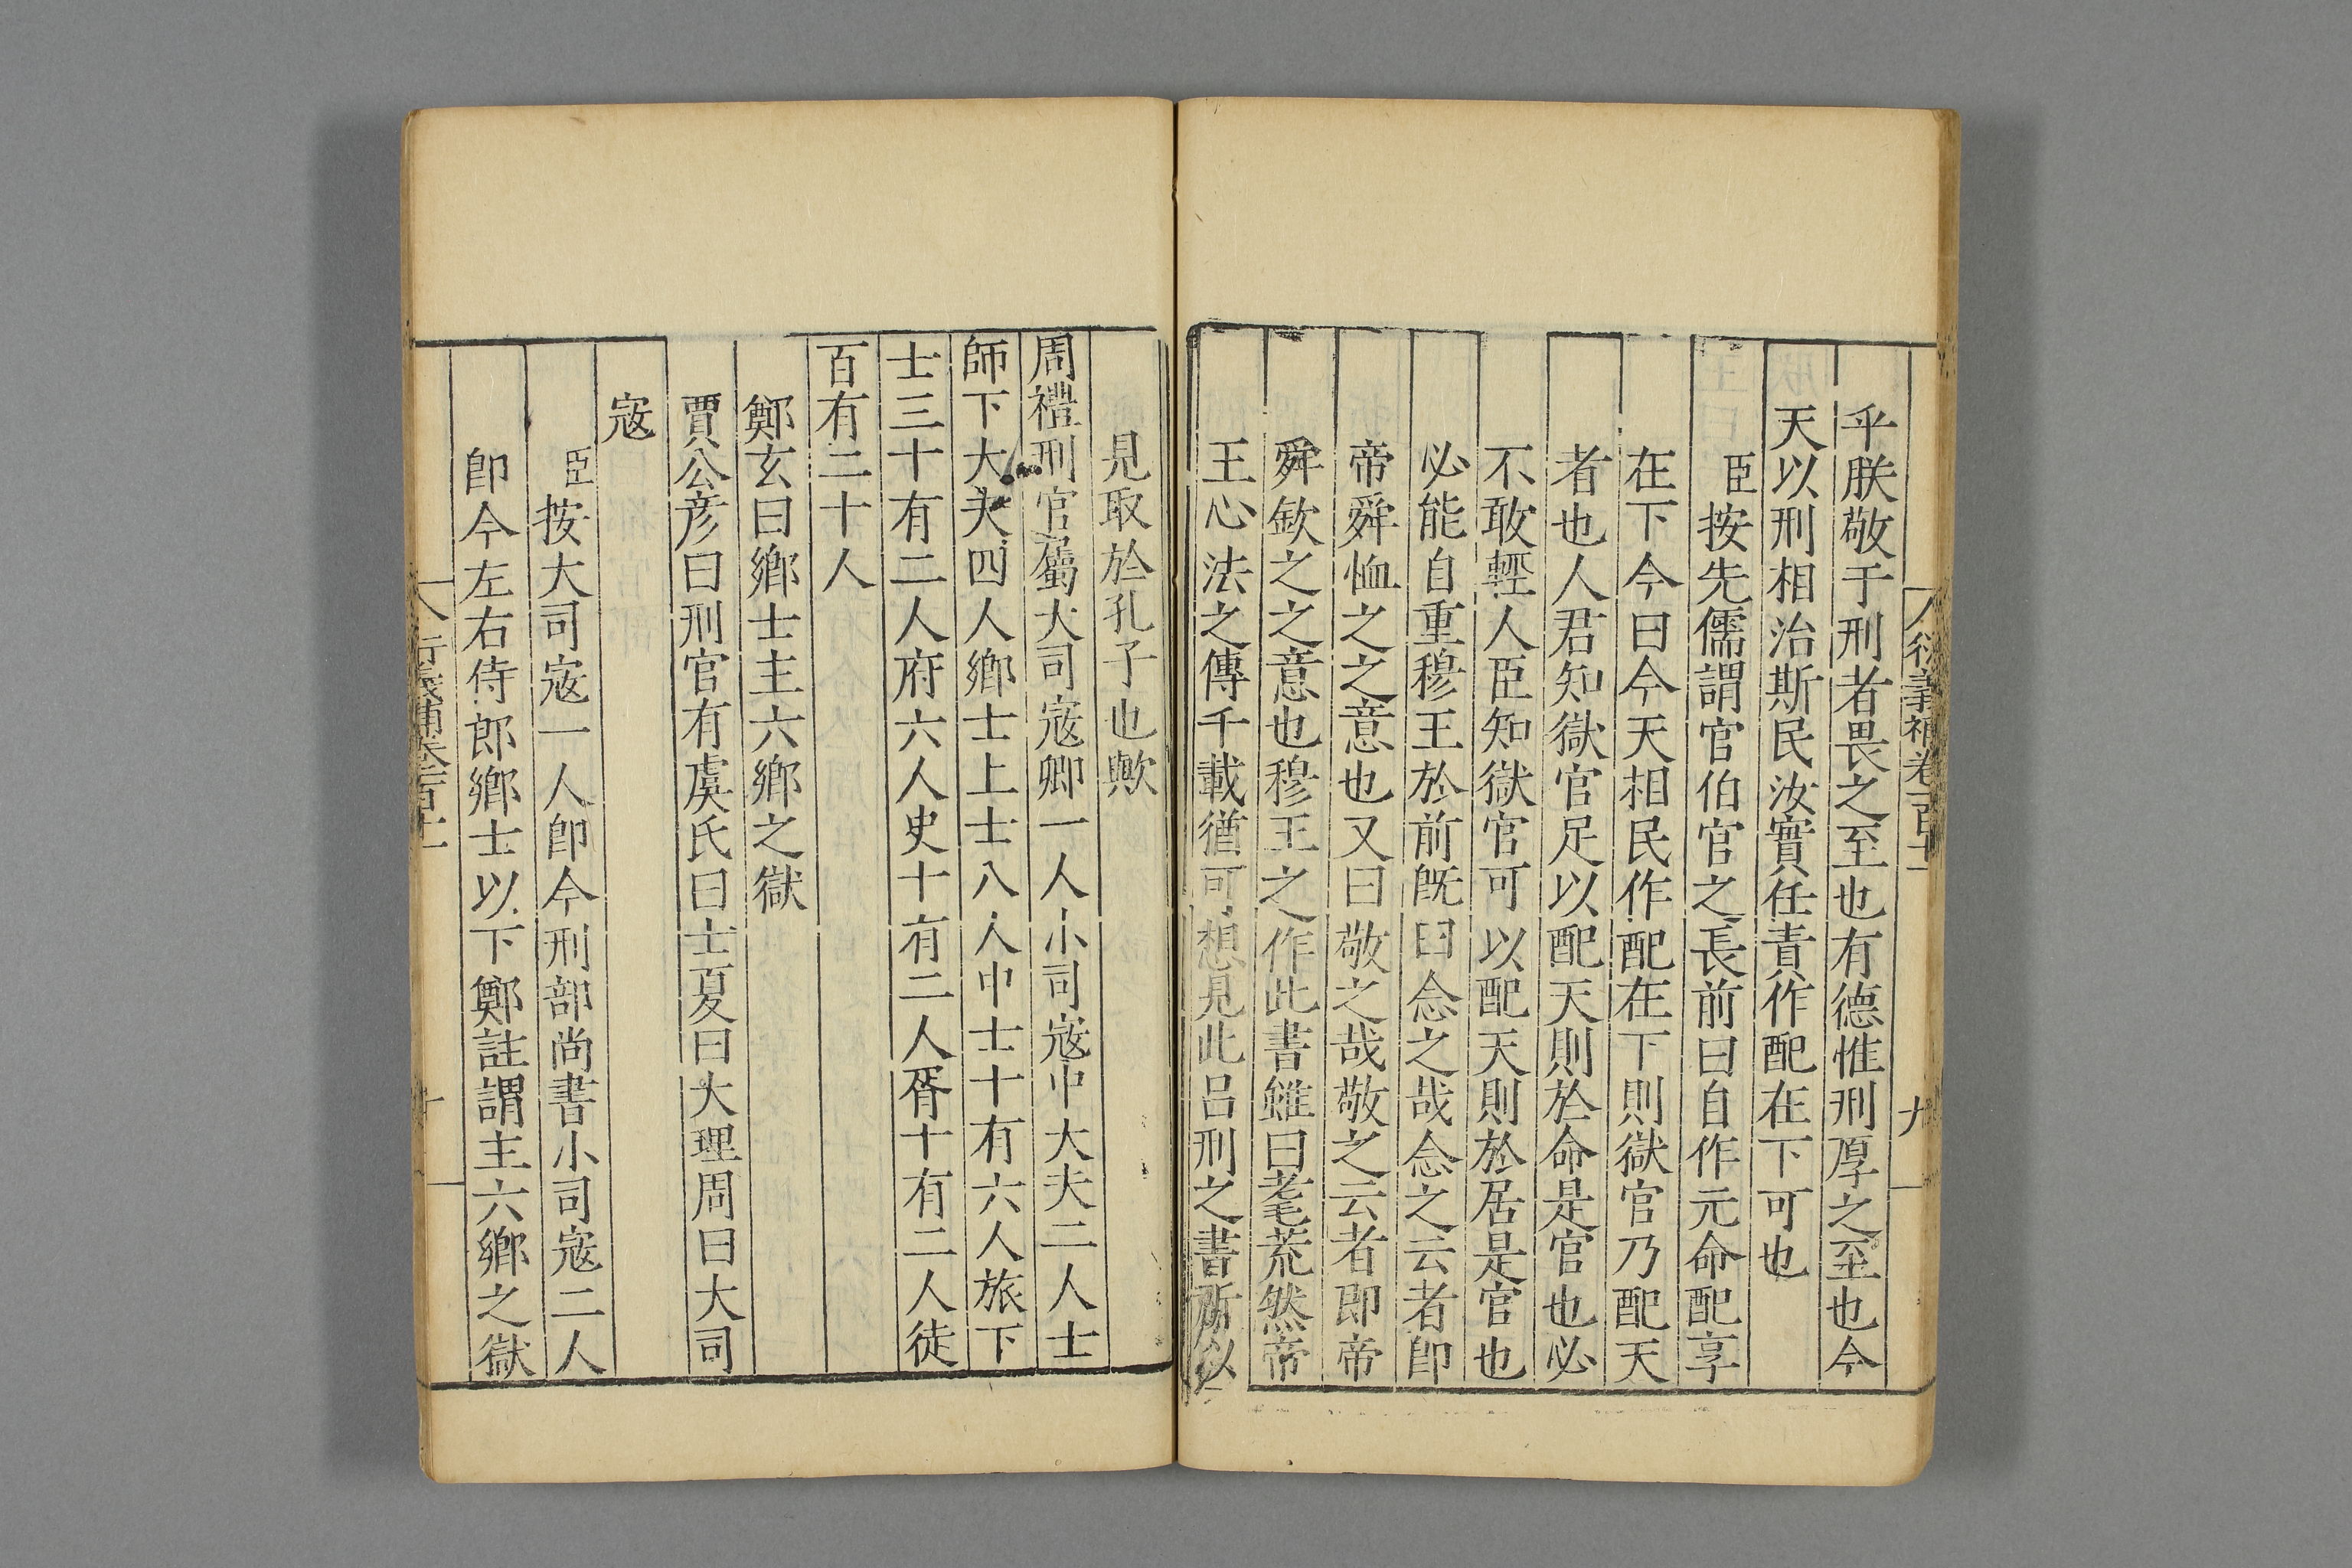 衍義補卷一百十一
九
乎朕敬于刑者畏之至也有德惟刑厚之至也今
天以刑相治斯民汝實任責作配在下可也
臣按先儒謂官伯官之長前曰自作元命配享
在下今曰今天相民作配在下則獄官乃配天
者也人君知獄官足以配天則於命是官也必
不敢輕人臣知獄官可以配天則於居是官也
必能自重穆王於前既曰念之哉念之云者即
帝舜恤之之意也又曰敬之哉敬之云者即帝
舜欽之之意也穆王之作此書雖曰耄荒然帝
王心法之傳千載猶可想見此吕刑之書所以
見取於孔子也歟
周禮刑官屬大司寇卿一人小司寇中大夫二人士
師下大夫四人鄉士上士八人中士十有六人旅下
士三十有二人府六人史十有二人胥十有二人徒
百有二十人
鄭玄曰鄉士主六鄉之獄
賈公彦曰刑官有虞氏曰士夏曰大理周曰大司
寇
臣按大司寇一人即今刑部尚書小司寇二人
即今左右侍郎鄉士以下鄭註謂主六鄉之獄
衍義補卷一百十一
十